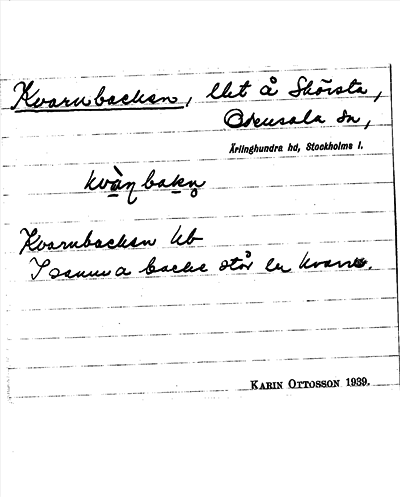 Kvarnbacken, lht å Skörsta,
Odensala sn,
Ärlinghundra hd, Stockholms l.
kvàṇ bakṇ
Kvarnbacken kb
I samma backe står en kvarn.
KARIN OTTOSSON 1939.